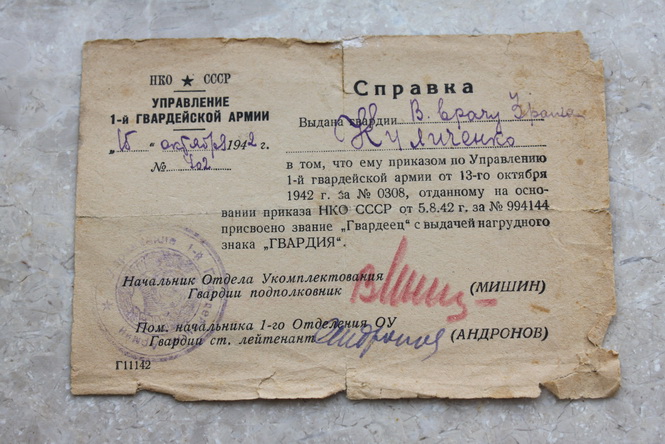 НКО ★ СССР
УПРАВЛЕНИЕ
1-й ГВАРДЕЙСКОЙ АРМИИ
„15“ октября 1942 г.
№ 402
Справка
Выдана гвардии В. врачу
Куличенко
в том, что ему приказом по Управлению
1-й гвардейской армии от 13-го октября
1942 г. за № 0308, отданному на осно-
вании приказа НКО СССР от 5.8.42 г. за № 994144
присвоено звание „Гвардеец“ с выдачей нагрудного
знака „ГВАРДИЯ“.
Начальник Отдела Укомплектования
Гвардии подполковник (МИШИН)
Пом. начальника 1-го Отделения ОУ
Гвардии ст. лейтенант Андронов (АНДРОНОВ)
Г11142